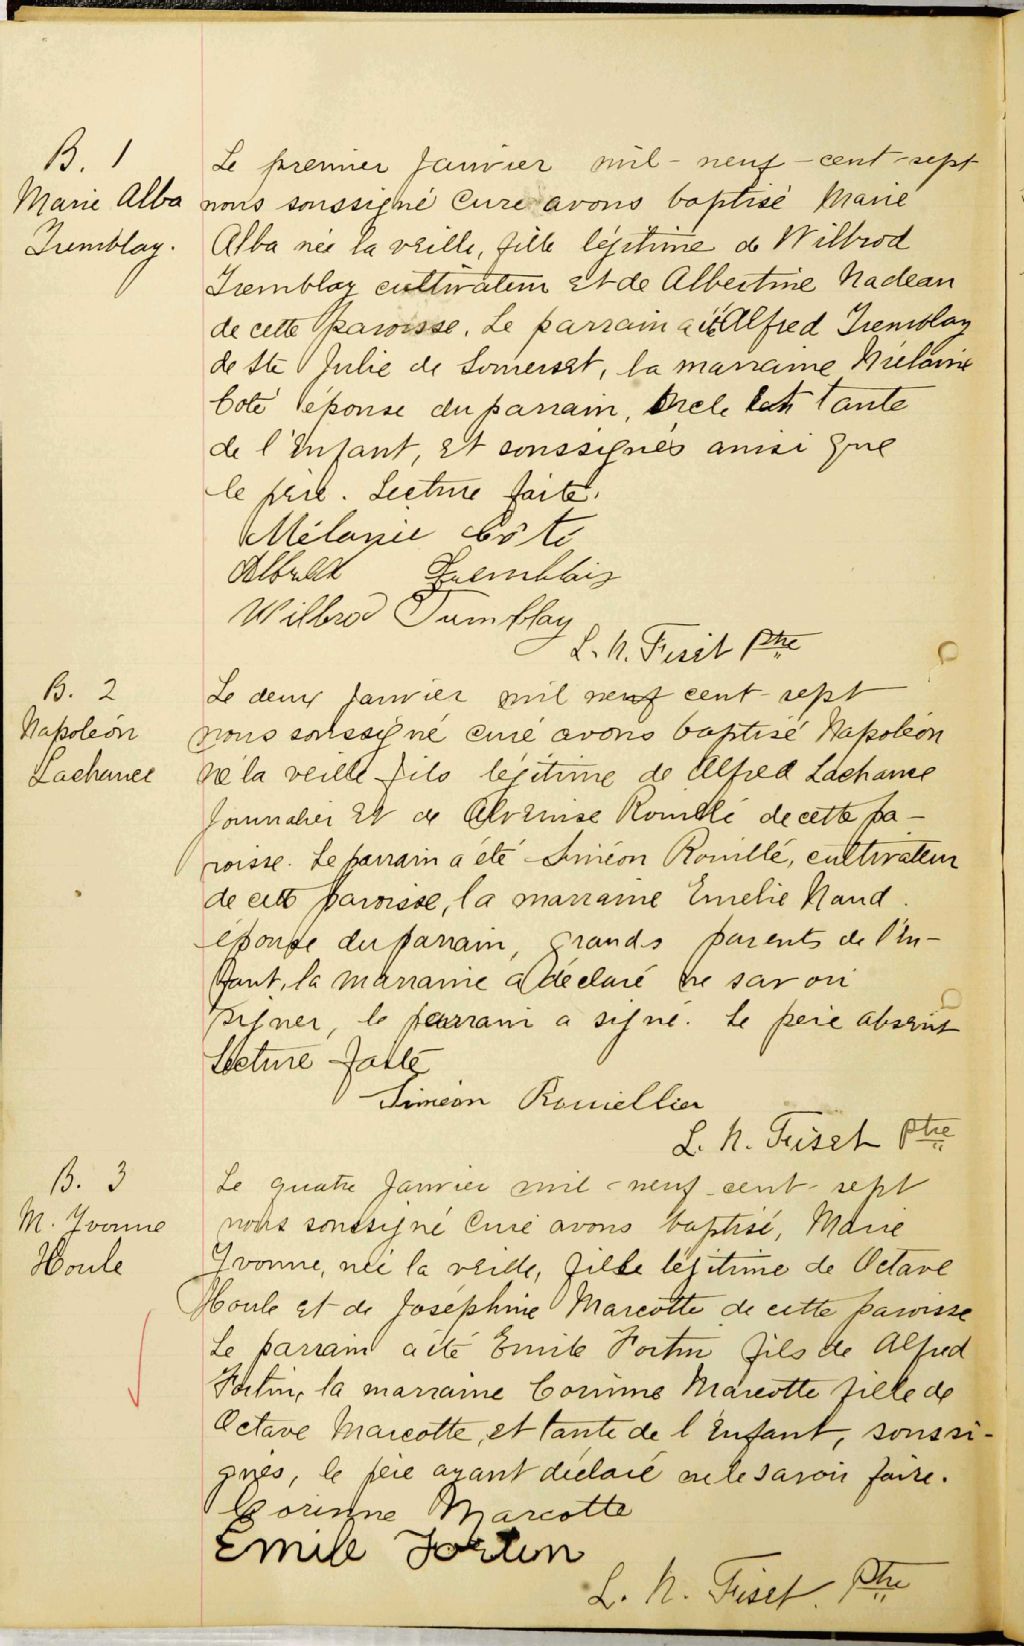 B. 1
Marie Alba
Tremblay.
Le premier Janvier mil-neuf-cent-sept
nous soussigné Curé avons baptisé Marie
Alba née la veille, fille légitime de Wilbrod
Tremblay cultivateur et de Albertine Nadeau
de cette paroisse. Le parrain a été Alfred Tremblay
de Ste Julie de Somerset, la marraine Mélanie
Coté épouse du parrain, oncle et tante
de l'enfant, et soussignés ainsi que
le père. Lecture faite.
Mélanie Côté
Alfred Tremblay
Wilbrod Tremblay
L. N. Fiset Ptre
B. 2
Napoléon
Lachance
Le deux Janvier mil neuf cent-sept
nous soussigné curé avons baptisé Napoléon
né la veille fils légitime de Alfred Lachance
Journalier et de Alvenise Rouillé de cette pa-
roisse. Le parrain a été Siméon Rouillé, cultivateur
de cette paroisse, la marraine Emelie Naud
épouse du parrain, grands parents de l'en-
fant, la marraine a déclaré ne savoir
signer, le parrain a signé. Le père absent
Lecture faite
Siméon Rouiellier
L. N. Fiset Ptre
B. 3
M. Yvonne
Houle
Le quatre Janvier mil-neuf-cent-sept
nous soussigné Curé avons baptisé, Marie
Yvonne, née la veille, fille légitime de Octave
Houle et de Joséphine Marcotte de cette paroisse
Le parrain a été Emile Fortin fils de Alfred
Fortin, la marraine Corinne Marcotte fille de
Octave Marcotte, et tante de l'enfant, soussi-
gnés, le père ayant déclaré ne le savoir faire.
Corinne Marcotte
Emile Fortin
L. N. Fiset. Ptre